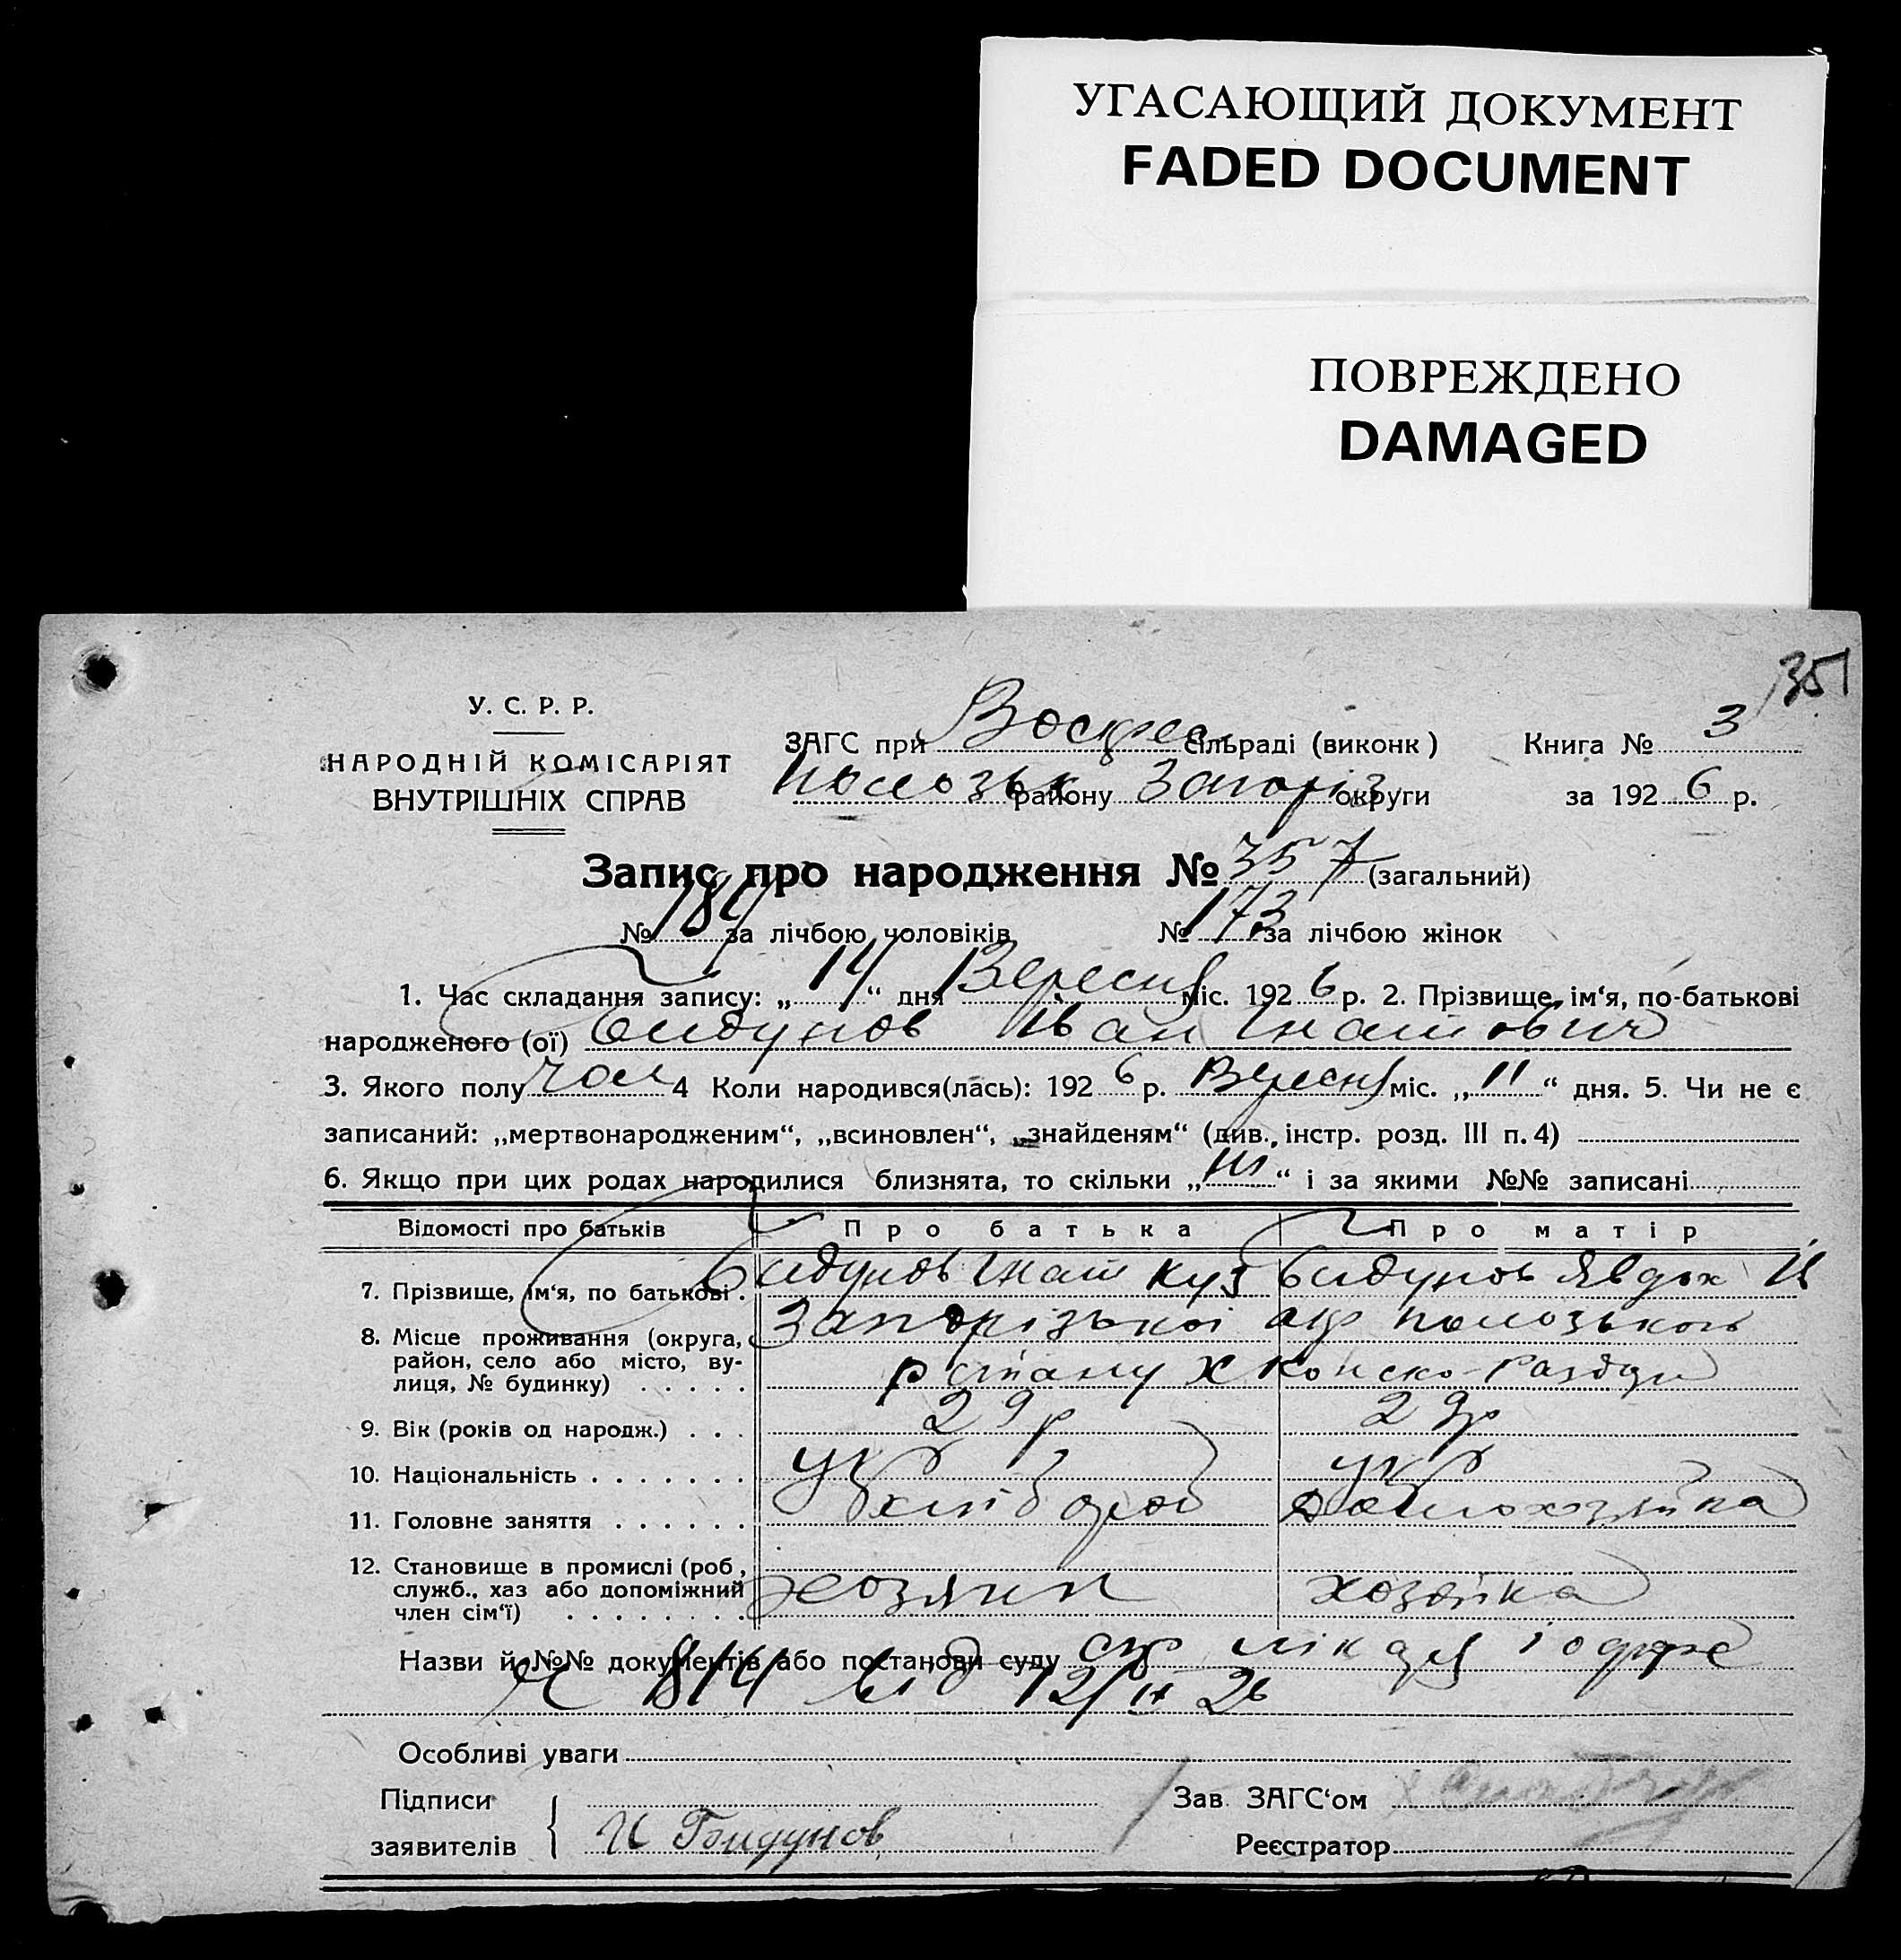 УГАСАЮЩИЙ ДОКУМЕНТ
FADED DOCUMENT
ПОВРЕЖДЕНО
DAMAGED
351
У. С. Р. Р.
НАРОДНІЙ КОМІСАРІЯТ
ВНУТРІШНІХ СПРАВ
ЗАГС при Воскрес сільраді (виконк) Книга № 3
району Запоріз округи за 1926 р.
Запис про народження № 357 (загальний)
№ 184 за лічбою чоловіків № 173 за лічбою жінок
1. Час складання запису: „14“ дня Вересня міс. 1926 р. 2. Прізвище, ім‘я, по-батькові
народженого (ої) Іван Гнатович
3. Якого полу чол 4 Коли народився(лась): 1926 р. Вересня міс. „11“ дня. 5. Чи не є
записаний: „мертвонародженим“, „всиновлен“, „знайденям“ (див., інстр. розд. III п. 4)
6. Якщо при цих родах народилися близнята, то скільки „ “ і за якими №№ записані
Відомості про батьків Про батька Про матір
7. Прізвище, ім‘я, по батькові. Гнат Куз Явдох
8. Місце проживання (округа, район, село або місто, вулиця, № будинку) Запорізької окр
р х Конско-Раздори
9. Вік (років од народж.) 29 р 29 р
10. Національність укр укр
11. Головне заняття хлібороб домохозяйка
12. Становище в промислі (роб, служб., хаз або допоміжний член сім‘ї) хозяин хозяйка
Назви й №№ документів або постанови суду
№ 814 від 12/IX 26
Особливі уваги
Підписи Зав ЗАГС‘ом
заявителів И Реєстратор